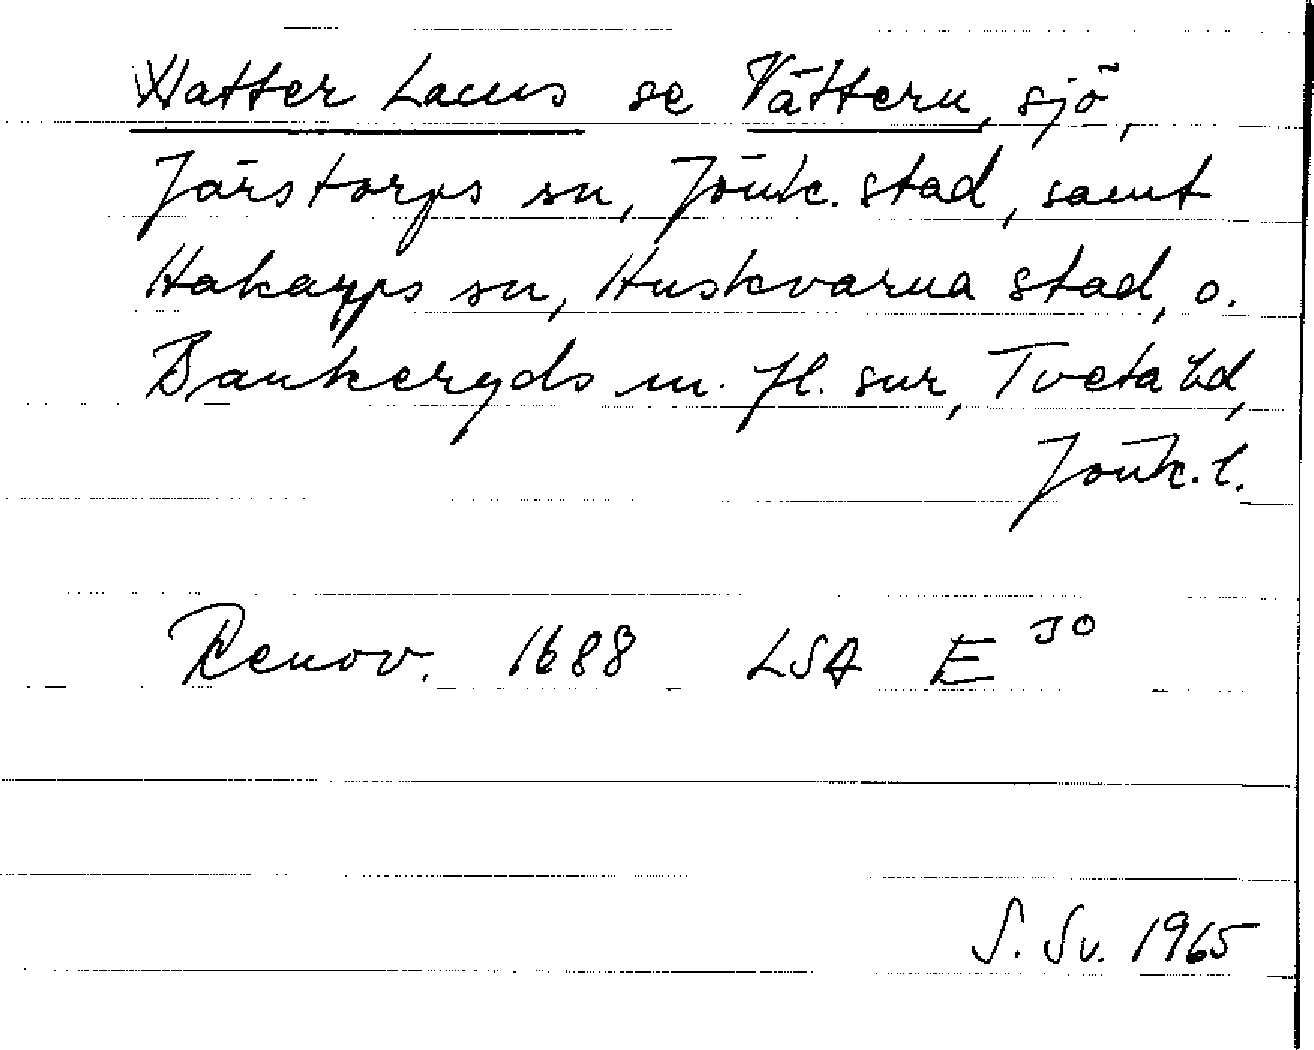 Watter Lacus se Vättern, sjö,
Järstorps sn, Jönk. stad, samt
Hakarps sn, Huskvarna stad, o.
Bankeryds m. fl. snr, Tveta hd,
Jönk. l.
Renov. 1688 LSA E 30
S. Sv. 1965